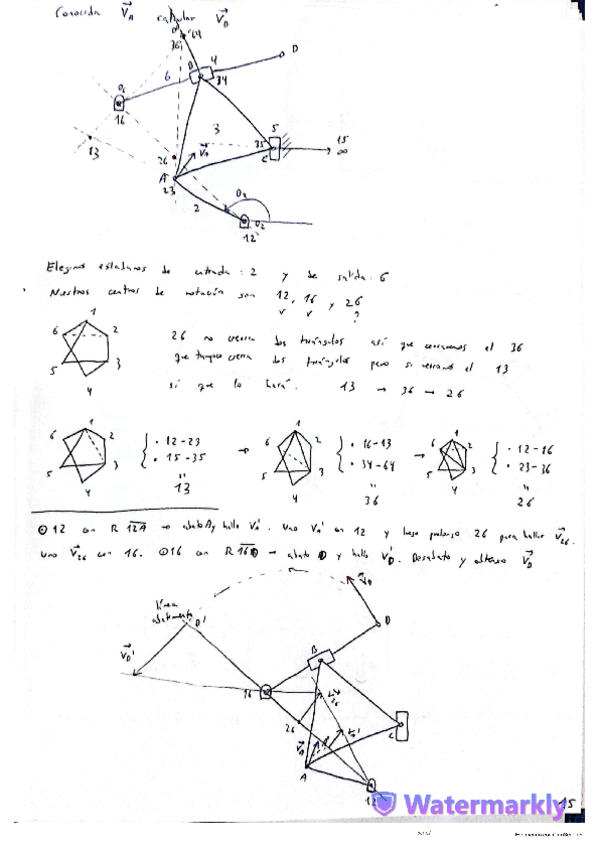 Conocida V_A calcular V_D
D' 64
36
B 4
34
D
6
O6
16
3
35 5
C
15
∞
13
26
V_A
A
23
2
O2
O2
12
Elegimos eslabones de entrada: 2 y de salida: 6
Nuestros centros de rotación son 12, 16 y 26
?
1
6 2
5 3
4
26 no cierra dos triángulos así que cerraremos el 36
que tampoco cierra dos triángulos pero si cerramos el 13
sí que lo hará. 13 → 36 → 26
1
6 2
5 3
4
· 12-23
· 15-35
"
13
→
1
6 2
5 3
4
· 16-13
· 34-64
"
36
→
1
6 2
5 3
4
· 12-16
· 23-36
"
26
⊙ 12 con R 12A → abato A y hallo V_A'. Uno V_A' con 12 y luego prolongo 26 para hallar V_26.
Uno V_26 con 16. ⊙ 16 con R 16D → abato D y hallo V_D'. Desabato y obtengo V_D
línea
abatimiento D'
V_D
D
V_D'
B
16
V_26
26
C
V_A
A
12
Watermarkly
15